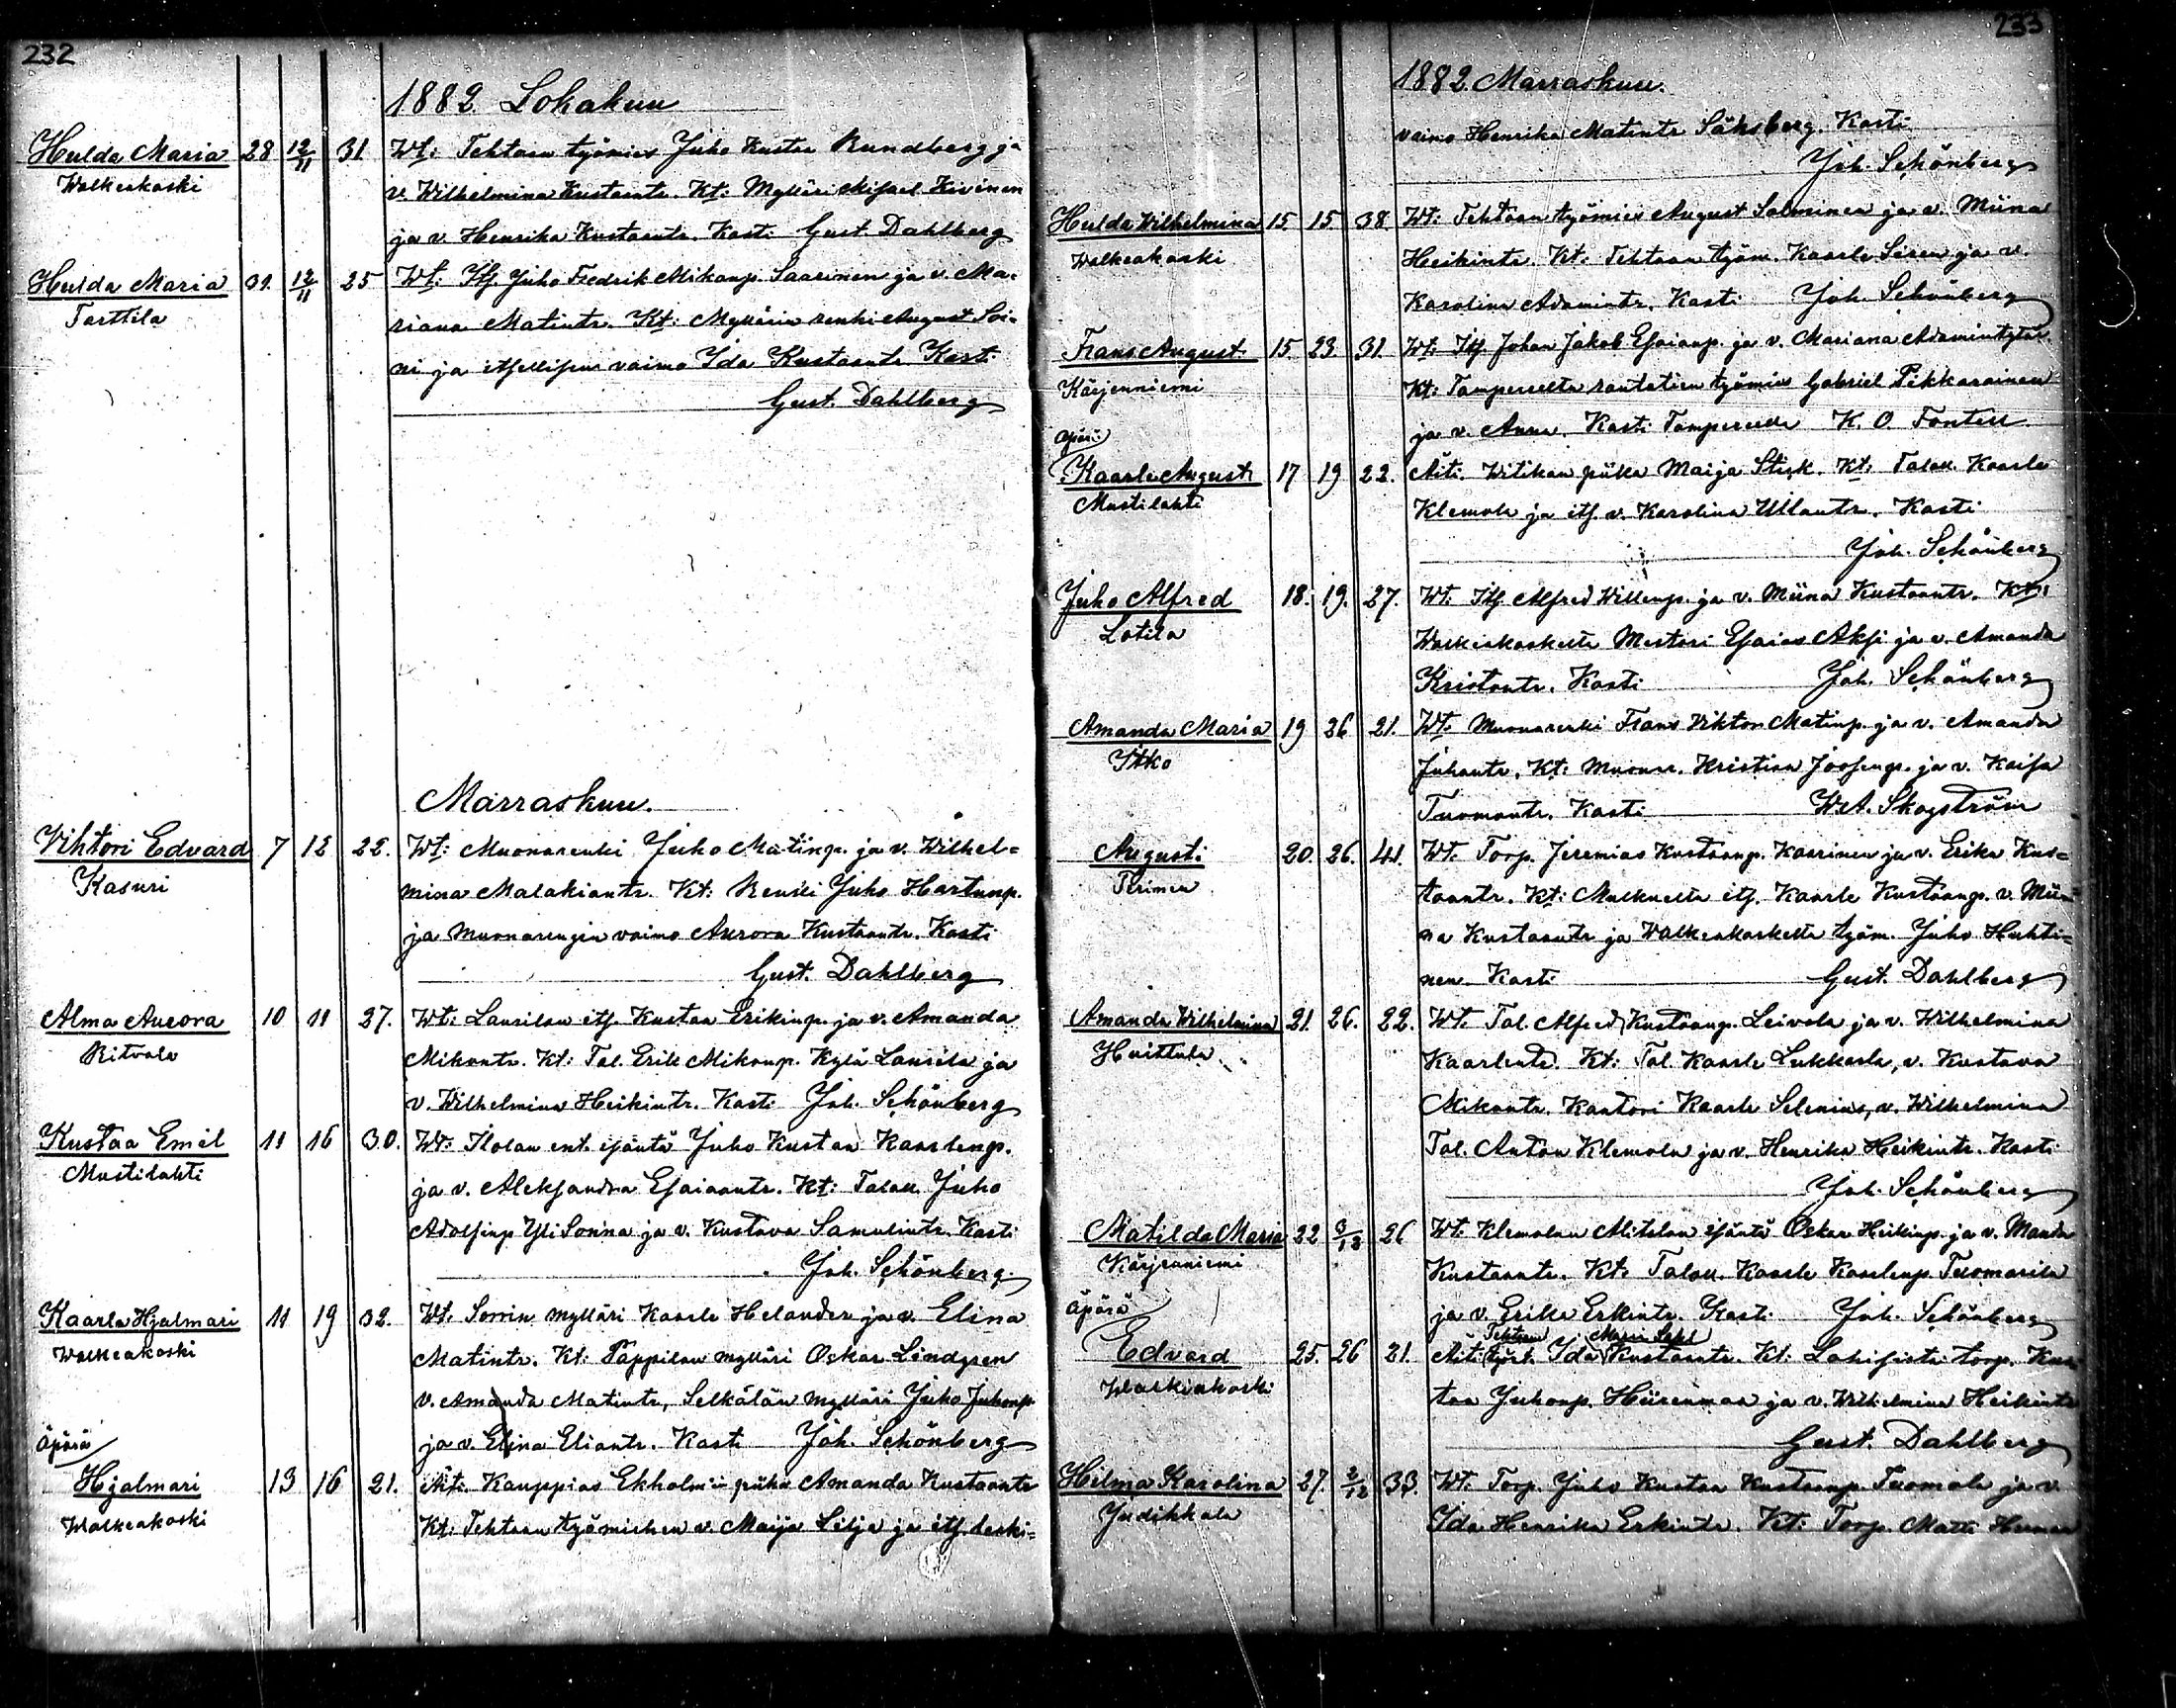 232
1882. Lokakuu
Hulda Maria 28 12/11 31 Wt: Tehtaan työmies Juho Kustaa Rundberg ja
Walkeakoski v. Wilhelmina Kustaantr. Kt: Mylläri Misael Kivinen
ja v. Henrika Kustaantr. Kasti Gust Dahlberg
Hulda Maria 31. 12/11 25 Wt: Itß. Juho Fredrik Mikonp. Saarinen ja v. Ma-
Tarttila riana Matintr. Kt: Myllärin renki August Soi-
ni ja itsellisen vaimo Ida Kustaantr Kasti
Gust. Dahlberg
Marraskuu.
Vihtori Edvard 7 12 22. Wt: Muonarenki Juho Matinp. ja v. Wilhel-
Kasuri mina Malakiantr. Kt: Renki Juho Hartunp.
ja muonarengin vaimo Aurora Kustaantr. Kasti
Gust. Dahlberg
Alma Aurora 10 11 27. Wt: Laurilan itß. Kustaa Erikinp. ja v. Amanda
Ritvala Mikontr. Kt: Tal. Erik Mikonp. Kylä Laurila ja
v. Wilhelmina Heikintr. Kasti Joh. Schönberg
Kustaa Emil 11 16 30. Wt: Ilolan ent. isäntä Juho Kustaa Kaarlenp.
Mustilahti ja v. Aleksandra Esaiaantr. Kt: Talall. Juho
Adolfinp. Yli Sonna ja v. Kustava Samulintr. Kasti
Joh. Schönberg.
Kaarla Hjalmari 11 19 32. Wt. Sorrin mylläri Kaarle Helander ja v. Elina
Walkeakoski Matintr. Kt: Pappilan mylläri Oskar Lindgren
v. Amanda Matintr, Selkälän mylläri Juho Juhonp.
äpärä ja v. Elina Eliantr. Kasti Joh. Schönberg
Hjalmari 13 16 21. Äiti. Kauppias Ekholmin piika Amanda Kustaantr
Walkeakoski Kt: Tehtaan työmiehen v. Maija Silja ja itß. leski-
233
1882. Marraskuu.
vaimo Henrika Matintr Säksberg. Kasti
Joh. Schönberg
Hulda Wilhelmina 15 15 38 Wt: Tehtaan työmies August Salminen ja v. Miina
Walkeakoski Heikintr. Kt: Tehtaan työm. Kaarle Siren ja v.
Karolina Adamintr. Kasti Joh. Schönberg
Frans August 15. 23 31. Wt: Itß Johan Jakob Esaianp. ja v. Mariana Adamintytär.
Kärjenniemi Kt: Tampereelta rautatien työmies Gabriel Pikkarainen
äpärä ja v. Anna. Kasti Tampereella K. O. Fontell
Kaarle August 17 19 22. Äiti. Witikan piika Maija Stick. Kt: Talall. Kaarle
Mustilahti Klemola ja itß. v. Karolina Ullantr. Kasti
Joh. Schönberg
Juho Alfred 18. 19. 27. Wt. Itß Alfred Willenp. ja v. Miina Kustaantr. Kt:
Lotila Walkeakoskelta Mestari Esaias Aksi ja v. Amanda
Kristantr. Kasti Joh. Schönberg
Amanda Maria 19 26 21. Wt. Muonarenki Frans Viktor Matinp. ja v. Amanda
Itko Juhantr. Kt: Muonar. Kristian Joosenp. ja v. Kaisa
Tuomontr. Kasti W.A. Skogström
Augusti 20. 26. 41. Wt. Torp. Jeremias Kustaanp. Kaarinen ja v. Erika Kus-
taantr. Kt: itß. Kaarle Kustaanp. v. Mii-
na Kustaantr ja Walkeakoskelta työm. Juho Huhti-
nen Kasti Gust. Dahlberg
Amanda Wilhelmina 21. 26. 22. Wt. Tal. Alfred Kustaanp. Leivola ja v. Wilhelmina
Huittula Kaarlentr. Kt: Tal. Kaarle Lukkarla, v. Kustava
Mikontr. Kanttori Kaarle Selenius, v. Wilhelmina
Tal. Anton Klemola ja v. Henrika Heikintr. Kasti
Joh. Schönberg
Matilda Maria 22 3/12 26 Wt. Klemolan isäntä Oskar Heikinp. ja v. Manda
Kärjenniemi Kustaantr. Kt: Talall. Kaarle Kaarlenp. Tuomarila
äpärä ja v. Erika Erkintr. Kasti Joh. Schönberg
Edvard 25. 26 21. Äiti Tehtaan työl. Ida Maria Kustaantr. Kt. Lahisista torp. Kus-
Walkeakoski taa Juhonp. Hiirenmaa ja v. Wilhelmina Heikintr
Gust. Dahlberg
Hilma Karolina 27. 2/12 33. Wt. Torp. Juho Kustaa Kustaanp. Tuomola ja v.
Judikkala Ida Henrika Erkintr. Kt: Torp. Matti